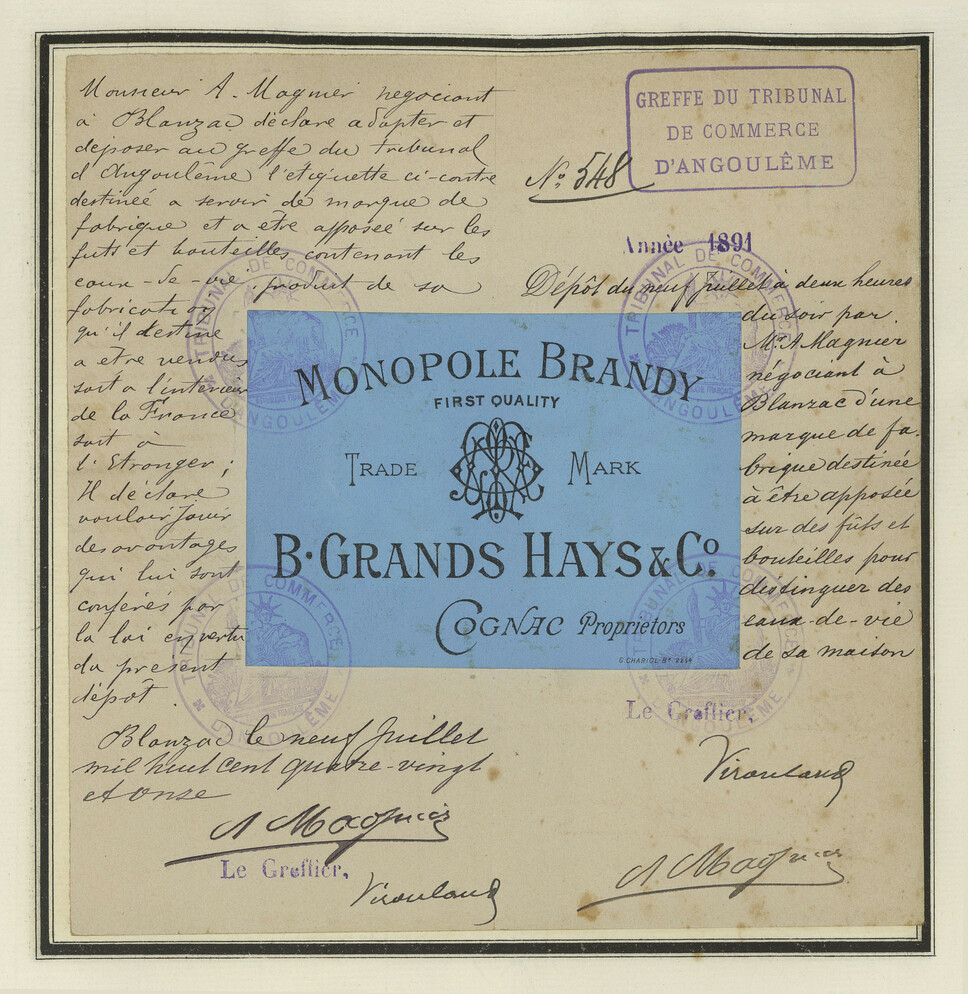 Monsieur A. Magnier negociant
à Blanzac déclare adopter et
déposer au greffe du tribunal
d'Angoulême l'étiquette ci-contre
destinée a servir de marque de
fabrique et a être apposée sur les
futs et bouteilles contenant les
eaux-de-vie produit de sa
fabrication
qu'il destine
a etre vendus
soit a l'interieur
de la France
soit à
l'Etranger ;
Il déclare
vouloir jouir
des avantages
qui lui sont
conférés par
la loi en vertu
du présent
dépôt.
Blanzac le neuf Juillet
mil huit cent quatre-vingt
et onze
A Magnier
Le Greffier,
GREFFE DU TRIBUNAL
DE COMMERCE
D'ANGOULÊME
No. 548
Année 1891
Dépôt du neuf juillet à deux heures
du soir par
Mr. A Magnier
négociant à
Blanzac d'une
marque de fa-
brique destinée
à être apposée
sur des fûts et
bouteilles pour
distinguer des
eaux-de-vie
de sa maison
Le Greffier,
A Magnier
MONOPOLE BRANDY
FIRST QUALITY
TRADE MARK
B. GRANDS HAYS & Co.
COGNAC Proprietors
TRIBUNAL DE COMMERCE
D'ANGOULÊME
TRIBUNAL DE COMMERCE
D'ANGOULÊME
TRIBUNAL DE COMMERCE
D'ANGOULÊME
TRIBUNAL DE COMMERCE
D'ANGOULÊME